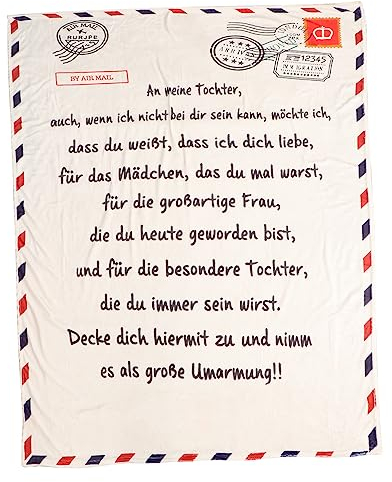 AIR MAIL
BY AIR MAIL
12345
An meine Tochter,
auch, wenn ich nicht bei dir sein kann, möchte ich,
dass du weißt, dass ich dich liebe,
für das Mädchen, das du mal warst,
für die großartige Frau,
die du heute geworden bist,
und für die besondere Tochter,
die du immer sein wirst.
Decke dich hiermit zu und nimm
es als große Umarmung!!